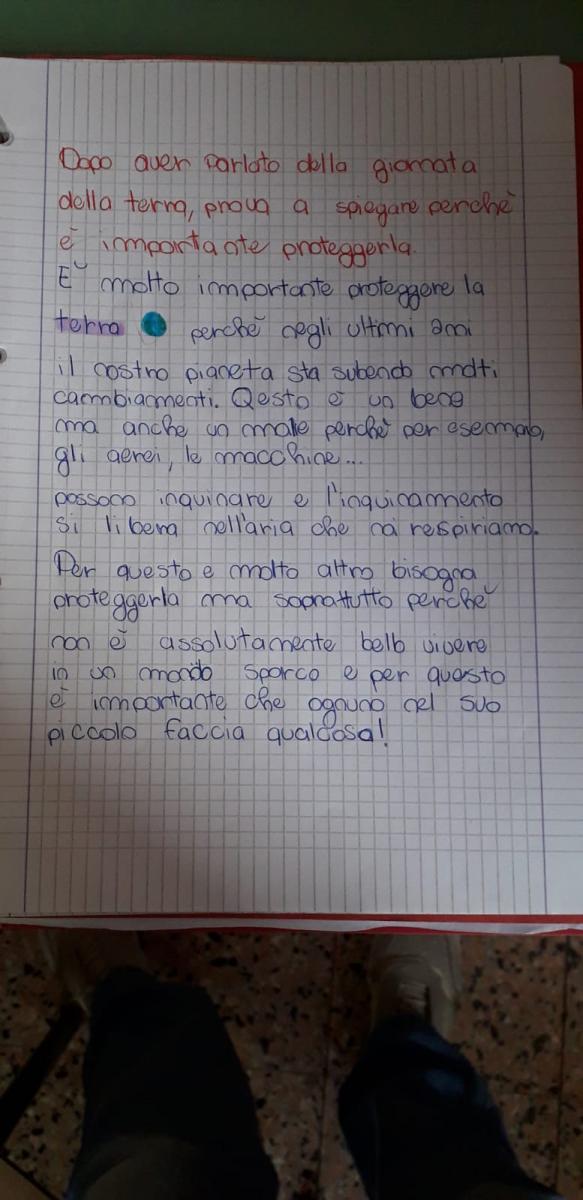 Dopo aver parlato della giornata
della terra, prova a spiegare perchè
è importante proteggerla.
E' molto importante proteggere la
terra perchè negli ultimi anni
il nostro pianeta sta subendo molti
cambiamenti. Qesto è un bene
ma anche un male perchè per esempio,
gli aerei, le macchine...
possono inquinare e l'inquinamento
si libera nell'aria che noi respiriamo.
Per questo e molto altro bisogna
proteggerla ma soprattutto perchè
non è assolutamente bello vivere
in un mondo sporco e per questo
è importante che ognuno nel suo
piccolo faccia qualcosa!